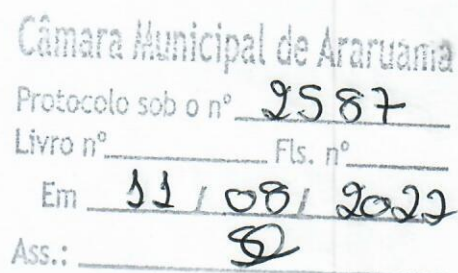 Câmara Municipal de Araruama
Protocolo sob o nº 2587
Livro nº Fls. nº
Em 11 / 08 / 2022
Ass.: